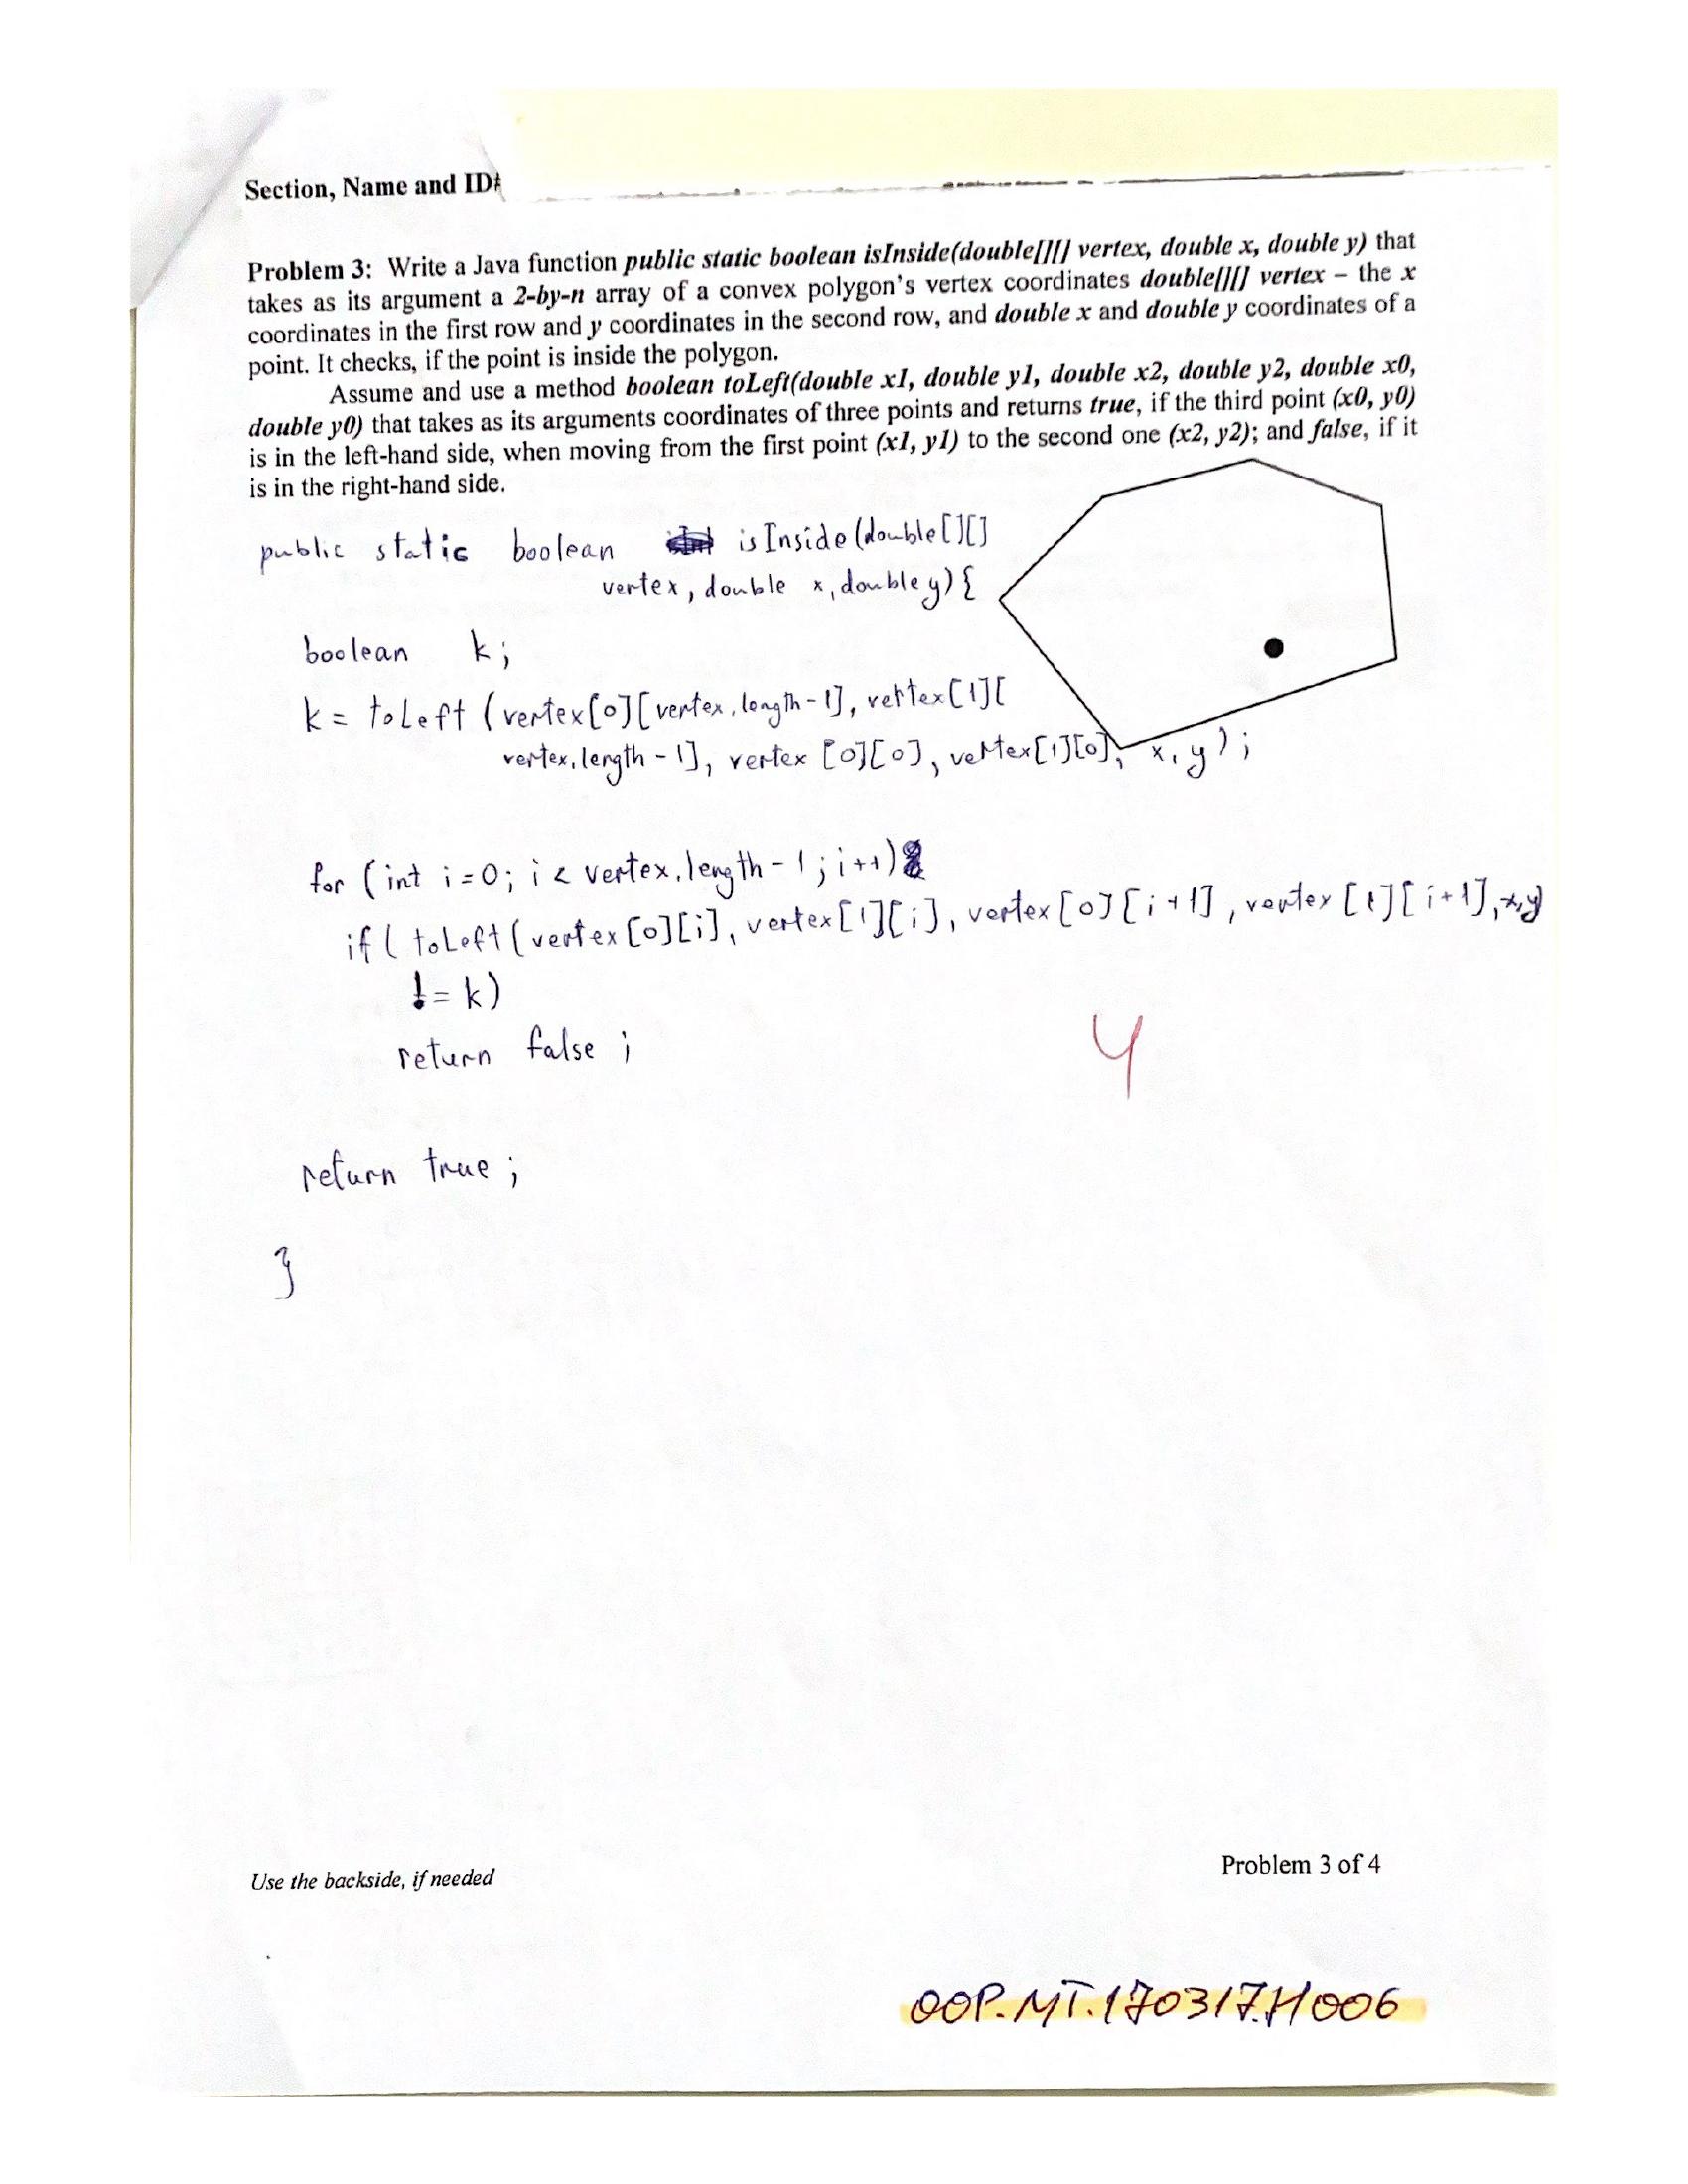 Section, Name and ID#
Problem 3: Write a Java function public static boolean isInside(double[][] vertex, double x, double y) that
takes as its argument a 2-by-n array of a convex polygon's vertex coordinates double[][] vertex – the x
coordinates in the first row and y coordinates in the second row, and double x and double y coordinates of a
point. It checks, if the point is inside the polygon.
Assume and use a method boolean toLeft(double x1, double y1, double x2, double y2, double x0,
double y0) that takes as its arguments coordinates of three points and returns true, if the third point (x0, y0)
is in the left-hand side, when moving from the first point (x1, y1) to the second one (x2, y2); and false, if it
is in the right-hand side.
public static boolean isInside(double[][]
vertex, double x, double y){
boolean k;
k = toLeft (vertex[0][vertex.length-1], vertex[1][
vertex.length-1], vertex [0][0], vertex[1][0], x, y);
for (int i=0; i < vertex.length-1; i++)
if( toLeft (vertex[0][i], vertex[1][i], vertex[0][i+1], vertex[1][i+1],x,y)
!= k)
return false ;
4
return true ;
}
Use the backside, if needed
Problem 3 of 4
OOP.MT.170317.H006